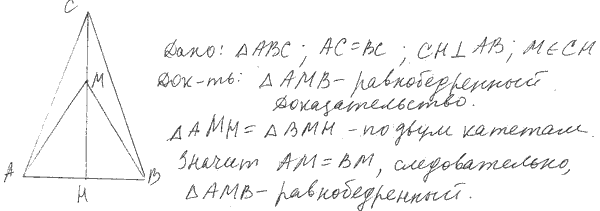 C
Дано: △ABC; AC=BC; CH⊥AB; M∈CH
M
Док-ть: △AMB – равнобедренный.
Доказательство.
△AMH = △BMH – по двум катетам.
Значит AM = BM, следовательно,
A
H
B
△AMB – равнобедренный.